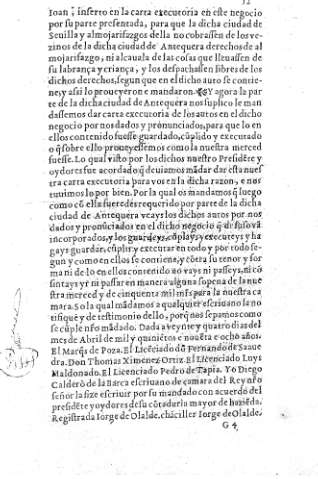 Ioan, inserto en la carta executoria en este negocio
por su parte presentada, para que la dicha ciudad de
Seuilla y almojarifazgos della no cobrassen de los ve-
zinos de la dicha ciudad de Antequera derechos de al
mojarifazgo, ni alcauala de las cosas que lleuassen de
su labrança y criança, y los despachassen libres de los
dichos derechos, segun que en el dicho auto se contie-
ne, y assi lo proueyeron e mandaron. ¶Y agora la par
te de la dicha ciudad de Antequera nos suplico le man
dassemos dar carta executoria de los autos en el dicho
negocio por nos dados y pronunciados, para que lo en
ellos contenido fuesse guardado, cũplido y executado
o q̃ sobre ello proueyessemos como la nuestra merced
fuesse. Lo qual visto por los dichos nuestro Presidẽte y
oydores fue acordado q̃ deuiamos mãdar dar esta nuef
tra carta executoria para vos en la dicha razon, e nos
tuuimos lo por bien. Por la qual os mandamos q̃ luego
como cõ ella fueredes requerido por parte de la dicha
ciudad de Antequera veays los dichos autos por nos
dados y pronunciados en el dicho negocio q̃ de suso vã
incorporados, y los guardeys, cũplays, y executeys y ha
gays guardar, cũplir y executar en todo y por todo se-
gun y como en ellos se contiene, y cõtra su tenor y for
ma ni de lo en ellos contenido no vays ni passeys, ni cõ
sintays yr ni passar en manera alguna so pena de la nue
stra merced y de cinquenta mil mrs para la nuestra ca
mara. So la qual mãdamos a qualquier escriuano la no
tifique y de testimonio dello, porq̃ nos sepamos como
se cũple nr̃o mãdado. Dada a veynte y quatro dias del
mes de Abril de mil y quiniẽtos e nouẽta e ocho años.
El Marq̃s de Poza. El Licẽciado dõ Fernando de Saaue
dra. Don Thomas Ximenez Ortiz. El Licenciado Luys
Maldonado. El Licenciado Pedro de Tapia. Yo Diego
Calderõ de la Barca escriuano de camara del Rey nr̃o
señor la fize escriuir por su mandado con acuerdo del
presidẽte y oydores de su cõtaduria mayor de haziẽda.
Registrada Iorge de Olalde, chãciller Iorge de Olalde.
G 4